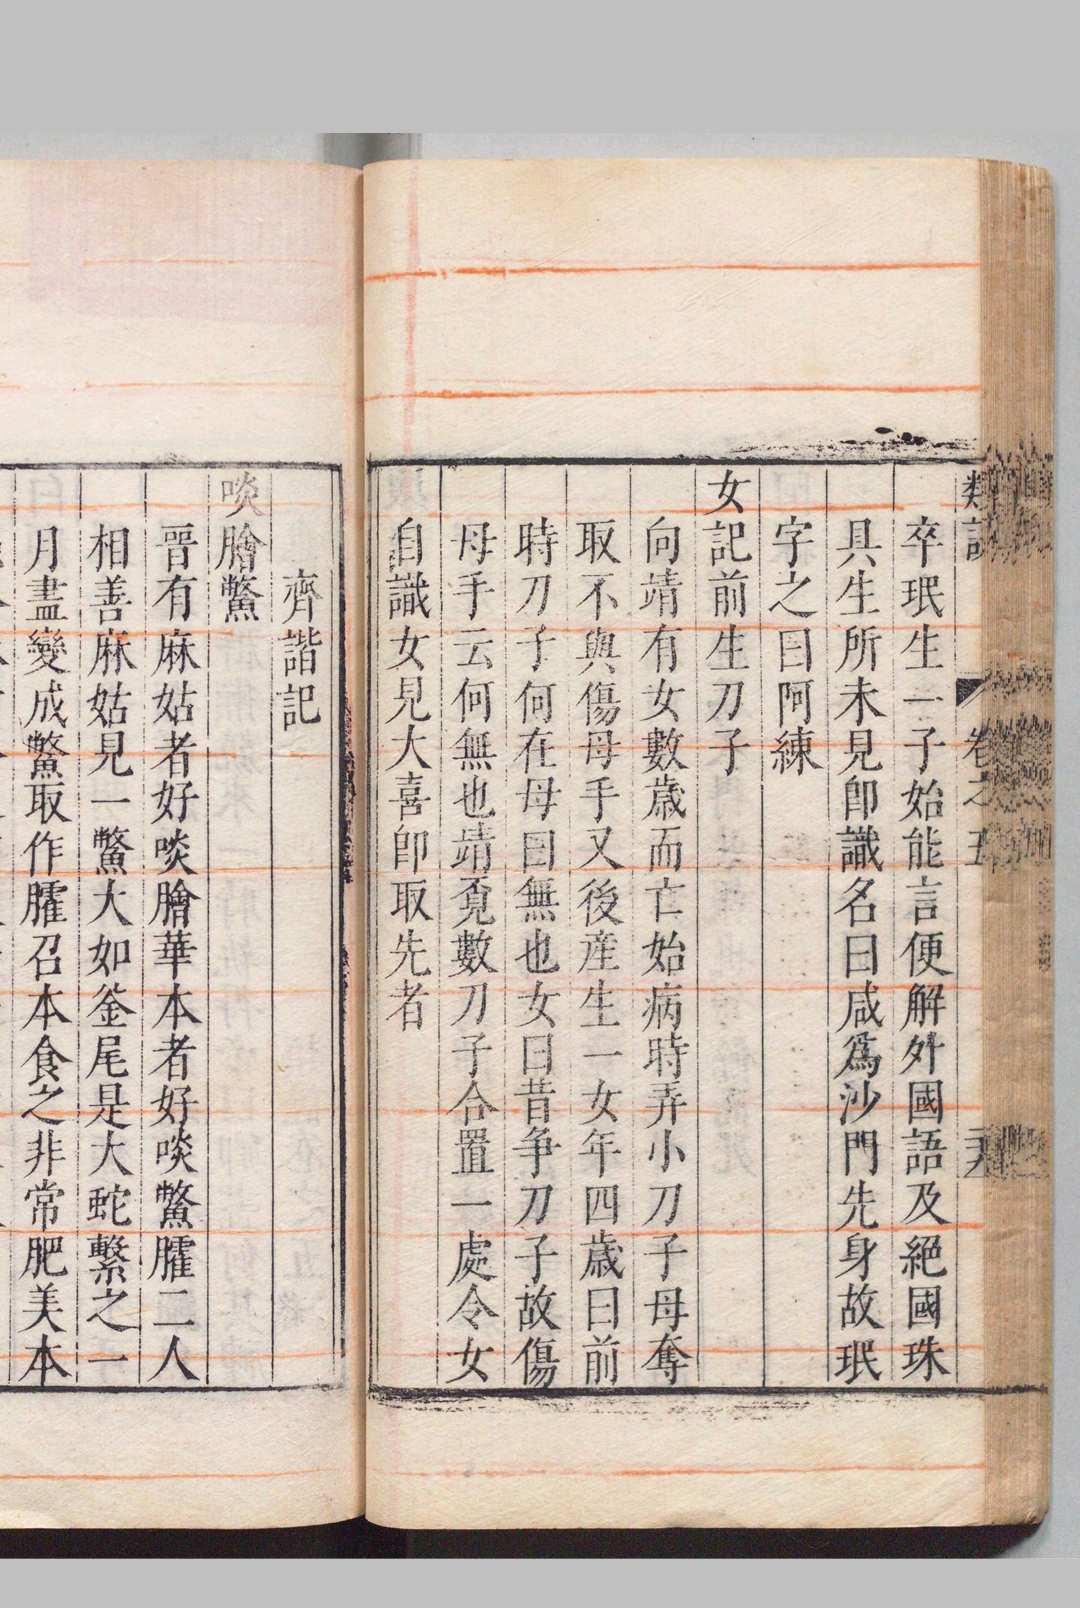 類說 卷之五
卒珉生一子始能言便解外國語及絕國珠
具生所未見卽識名曰咸爲沙門先身故珉
字之曰阿練
女記前生刀子
向靖有女數歳而亡始病時弄小刀子母奪
取不與傷母手又後産生一女年四歳曰前
時刀子何在母曰無也女曰昔争刀子故傷
母手云何無也靖覔數刀子合置一處令女
自識女見大喜卽取先者
齊諧記
啖膾鱉
晉有麻姑者好啖膾華本者好啖鱉臛二人
相善麻姑見一鱉大如釜尾是大蛇繫之一
月盡變成鱉取作臛召本食之非常肥美本